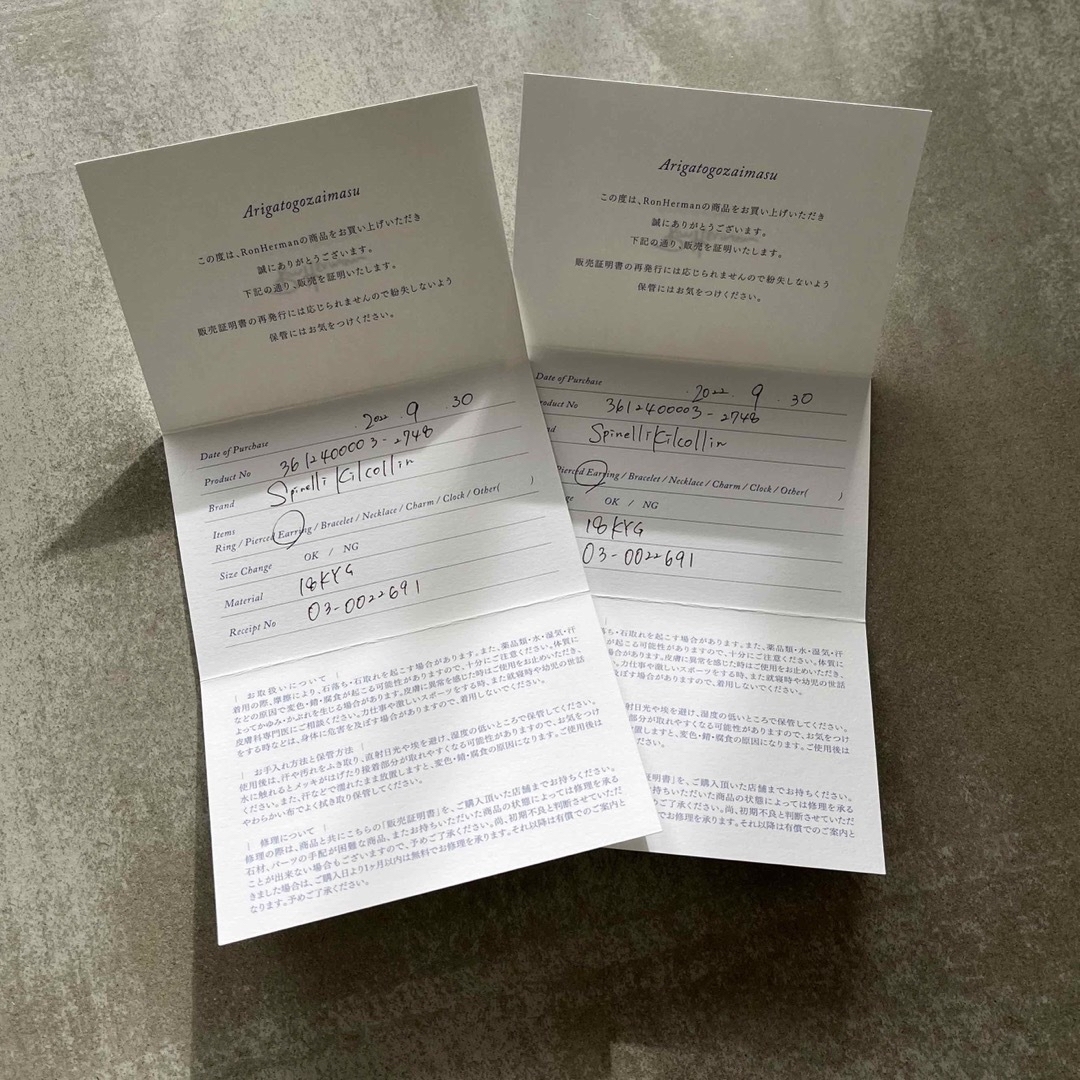 Arigatogozaimasu
この度は、RonHermanの商品をお買い上げいただき
誠にありがとうございます。
下記の通り、販売を証明いたします。
販売証明書の再発行には応じられませんので紛失しないよう
保管にはお気をつけください。
Date of Purchase 2022 . 9 . 30
Product No 3612400003-2748
Brand Spinelli Kilcollin
Items
Ring / Pierced Earring / Bracelet / Necklace / Charm / Clock / Other( )
Size Change OK / NG
Material 18KYG
Receipt No 03-0022691
| お取扱いについて |
着用の際、摩擦により、石落ち・石取れを起こす場合があります。また、薬品類・水・湿気・汗
などの原因で変色・錆・腐食が起こる可能性がありますので、十分にご注意ください。体質に
よってかゆみ・かぶれを生じる場合があります。皮膚に異常を感じた時はご使用をお止めいただき、
皮膚科専門医にご相談ください。力仕事や激しいスポーツをする時、また就寝時や幼児の世話
をする時などは、身体に危害を及ぼす場合がありますので、着用しないでください。
| お手入れ方法と保管方法 |
使用後は、汗や汚れをふき取り、直射日光や埃を避け、湿度の低いところで保管してください。
水に触れるとメッキがはげたり接着部分が取れやすくなる可能性がありますので、お気をつけ
ください。また、汗などで濡れたまま放置しますと、変色・錆・腐食の原因になります。ご使用後は
やわらかい布でよく拭き取り保管してください。
| 修理について |
修理の際は、商品と共にこちらの「販売証明書」を、ご購入頂いた店舗までお持ちください。
石材、パーツの手配が困難な商品、またお持ちいただいた商品の状態によっては修理を承る
ことが出来ない場合もございますので、予めご了承ください。尚、初期不良と判断させていただ
きました場合は、ご購入日より1ヶ月以内は無料でお修理を承ります。それ以降は有償でのご案内と
なります。予めご了承ください。
Arigatogozaimasu
この度は、RonHermanの商品をお買い上げいただき
誠にありがとうございます。
下記の通り、販売を証明いたします。
販売証明書の再発行には応じられませんので紛失しないよう
保管にはお気をつけください。
Date of Purchase . 2022 . 9 . 30
oduct No 3612400003-2748
d Spinelli Kilcollin
Pierced Earring / Bracelet / Necklace / Charm / Clock / Other( )
ge OK / NG
18KYG
03-0022691
石落ち・石取れを起こす場合があります。また、薬品類・水・湿気・汗
が起こる可能性がありますので、十分にご注意ください。体質に
場合があります。皮膚に異常を感じた時はご使用をお止めいただき、
力仕事や激しいスポーツをする時、また就寝時や幼児の世話
及ぼす場合がありますので、着用しないでください。
射日光や埃を避け、湿度の低いところで保管してください。
部分が取れやすくなる可能性がありますので、お気をつけ
置しますと、変色・錆・腐食の原因になります。ご使用後は
ださい。
証明書」を、ご購入頂いた店舗までお持ちください。
持ちいただいた商品の状態によっては修理を承る
ください。尚、初期不良と判断させていただ
でお修理を承ります。それ以降は有償でのご案内と